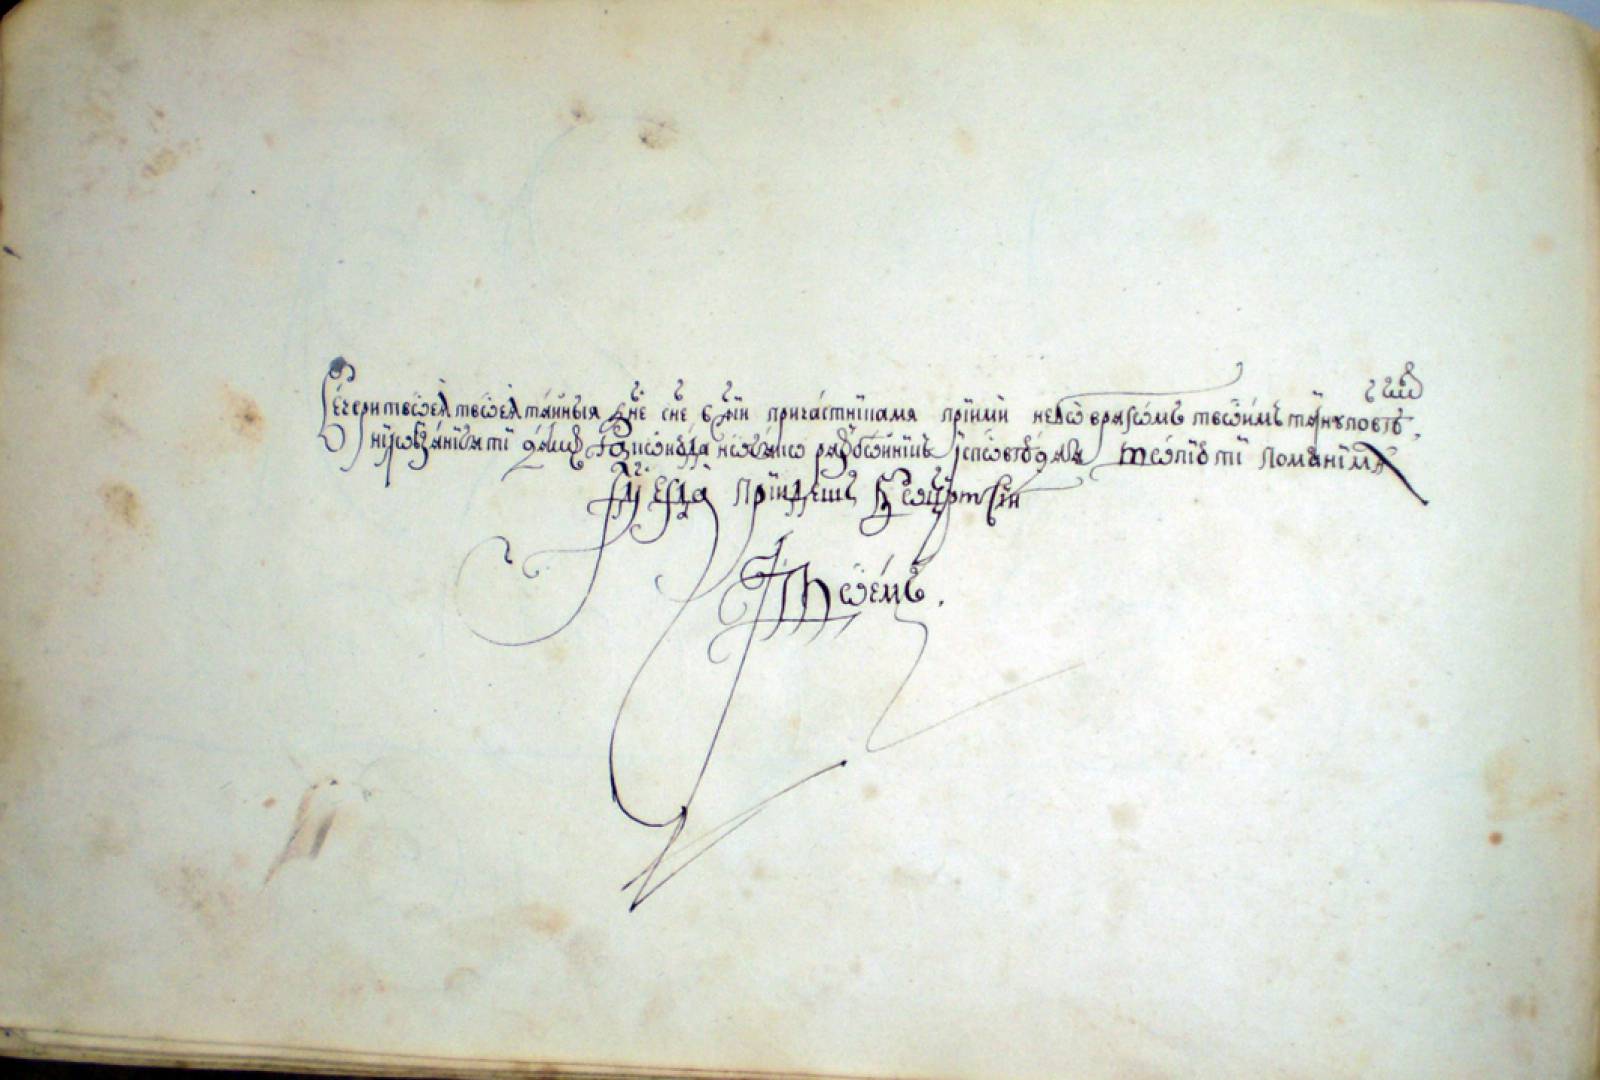 Вечери твоея твоея тайныя дне сне бжїи причастнїика мя прїими не бо врагомъ твоимъ тайну повѣмъ
ни лобзанїѧ ти дамъ яко июда но яко разбойникъ исповѣдаю тѧ помѧни мѧ
гди егда прїидеши во црствїи
твоемъ.